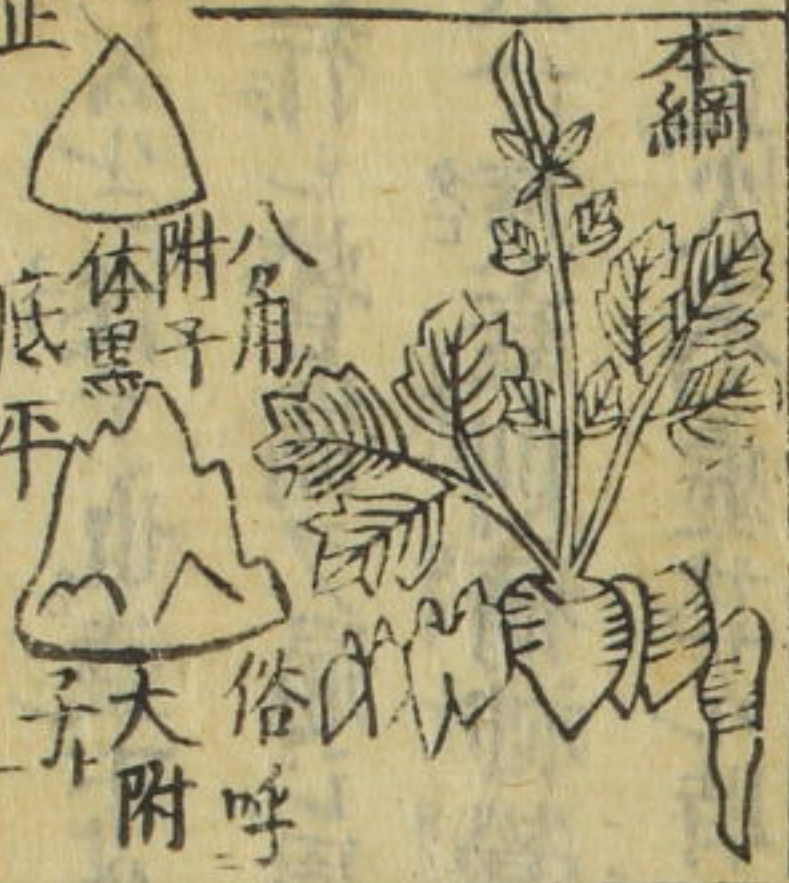 本綱
八角
附子
体黒
底平
正
俗呼
大附
子ト